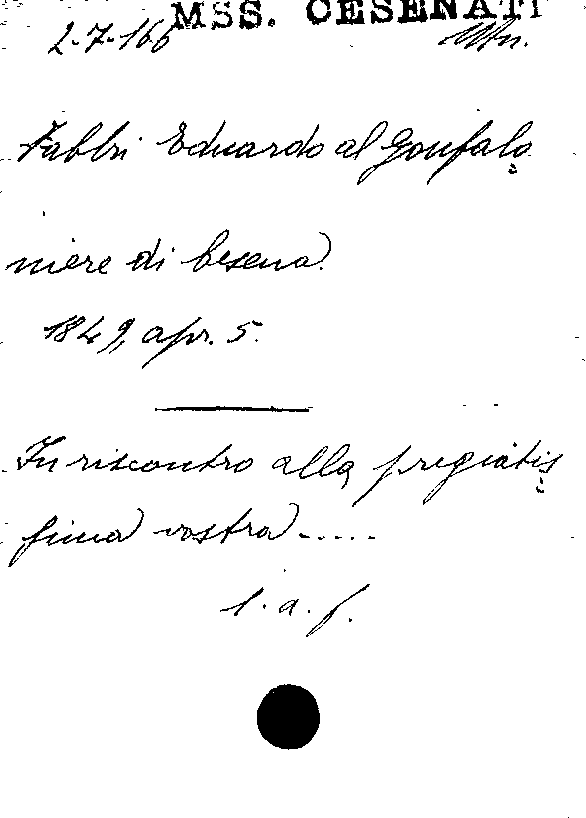 MSS. CESENATI
2-7-166
Fabbri Eduardo al Gonfalo=
niere di Cesena.
1849, apr. 5.
In riscontro alla pregiatis=
sima vostra.....
l. a. f.